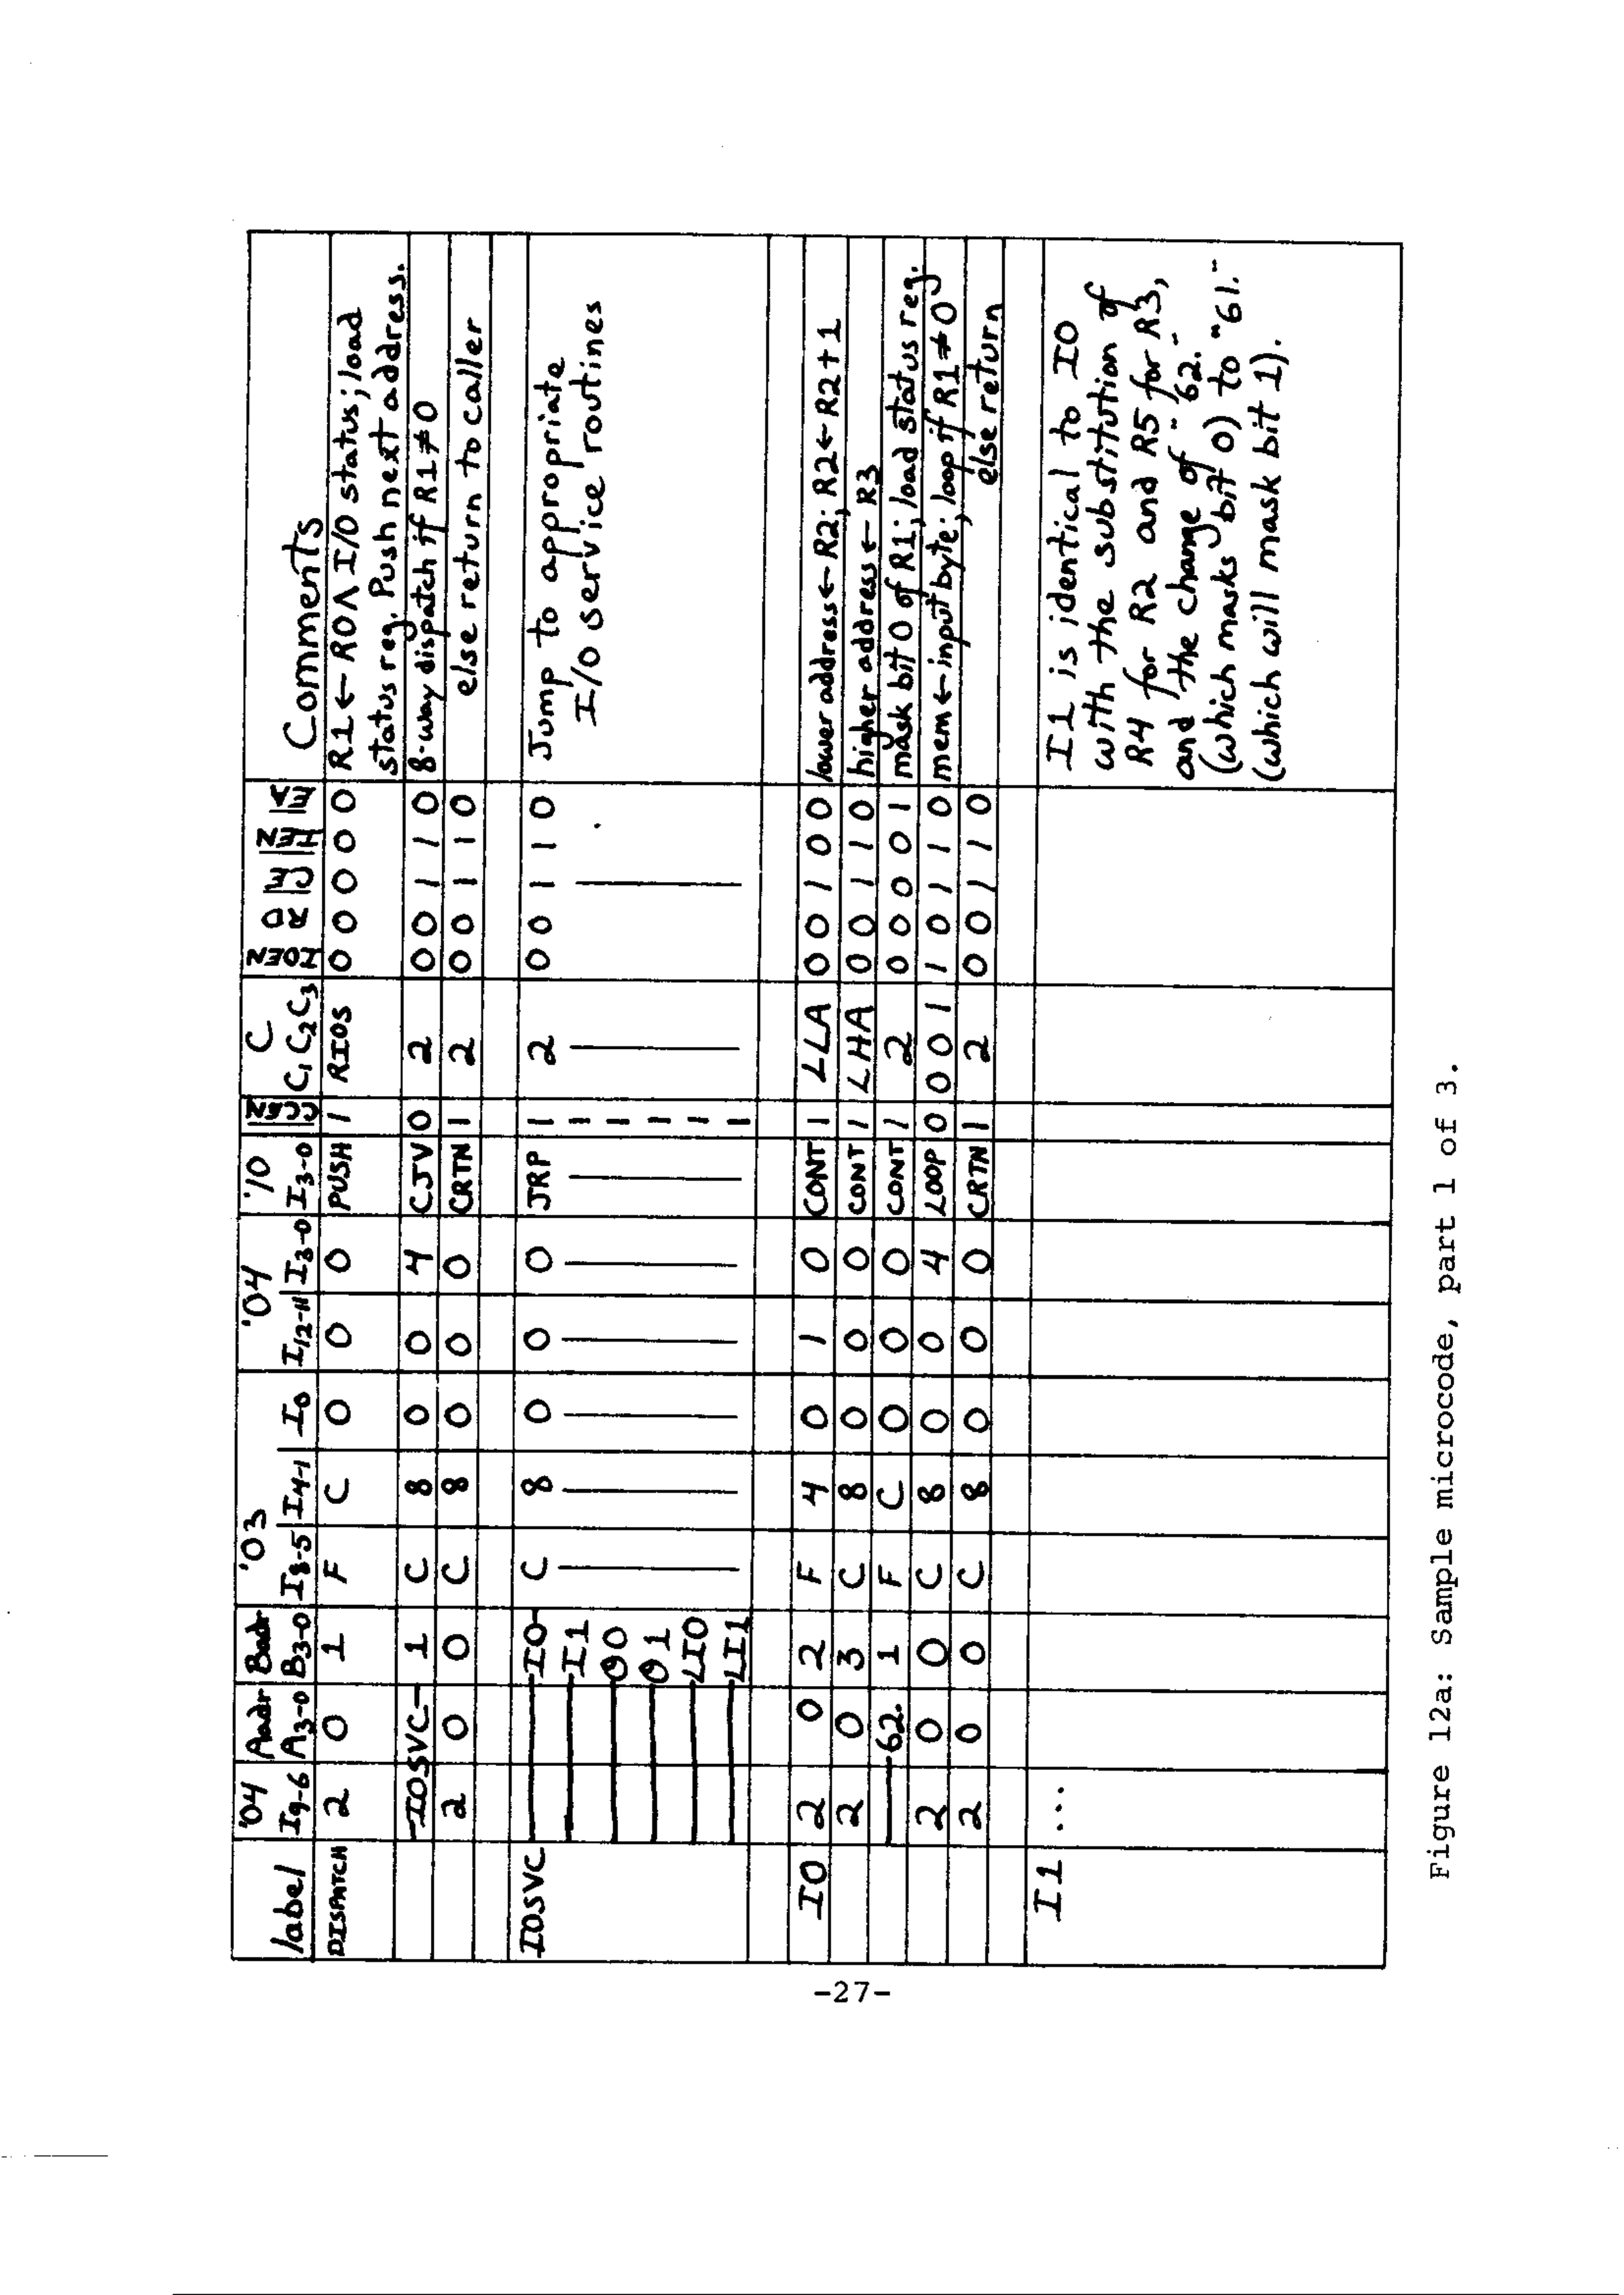 label '04 Aadr Badr '03 '04 '10 C Comments
I9-6 A3-0 B3-0 I8-5 I4-1 I0 I12-11 I3-0 I3-0 CCEN C1 C2 C3 IOEN RD CE IEN EA
DISPATCH 2 0 1 F C 0 0 0 PUSH 1 RIOS 0 0 0 0 0 R1 ← R0 ∧ I/O status; load
status reg. Push next address.
-IOSVC- 1 C 8 0 0 4 CJV 0 2 0 0 1 1 0 8-way dispatch if R1≠0
2 0 0 C 8 0 0 0 CRTN 1 2 0 0 1 1 0 else return to caller
IOSVC I0 C 8 0 0 0 JRP 1 2 0 0 1 1 0 Jump to appropriate
I1 I/O service routines
O0
O1
LI0
LI1
I0 2 0 2 F 4 0 1 0 CONT 1 LLA 0 0 1 0 0 lower address←R2; R2←R2+1
2 0 3 C 8 0 0 0 CONT 1 LHA 0 0 1 1 0 higher address←R3
62. 1 F C 0 0 0 CONT 1 2 0 0 0 0 1 mask bit 0 of R1; load status reg.
2 0 0 C 8 0 0 4 LOOP 0 0 0 1 1 0 1 1 0 mem←input byte; loop if R1≠0
2 0 0 C 8 0 0 0 CRTN 1 2 0 0 1 1 0 else return
I1 ... I1 is identical to I0
with the substitution of
R4 for R2 and R5 for R3,
and the change of "62."
(which masks bit 0) to "61."
(which will mask bit 1).
Figure 12a: Sample microcode, part 1 of 3.
-27-